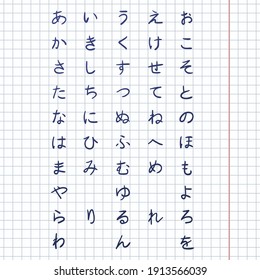 あ い う え お
か き く け こ
さ し す せ そ
た ち つ て と
な に ぬ ね の
は ひ ふ へ ほ
ま み む め も
や ゆ よ
ら り る れ ろ
わ ん を
shutterstock.com · 1913566039